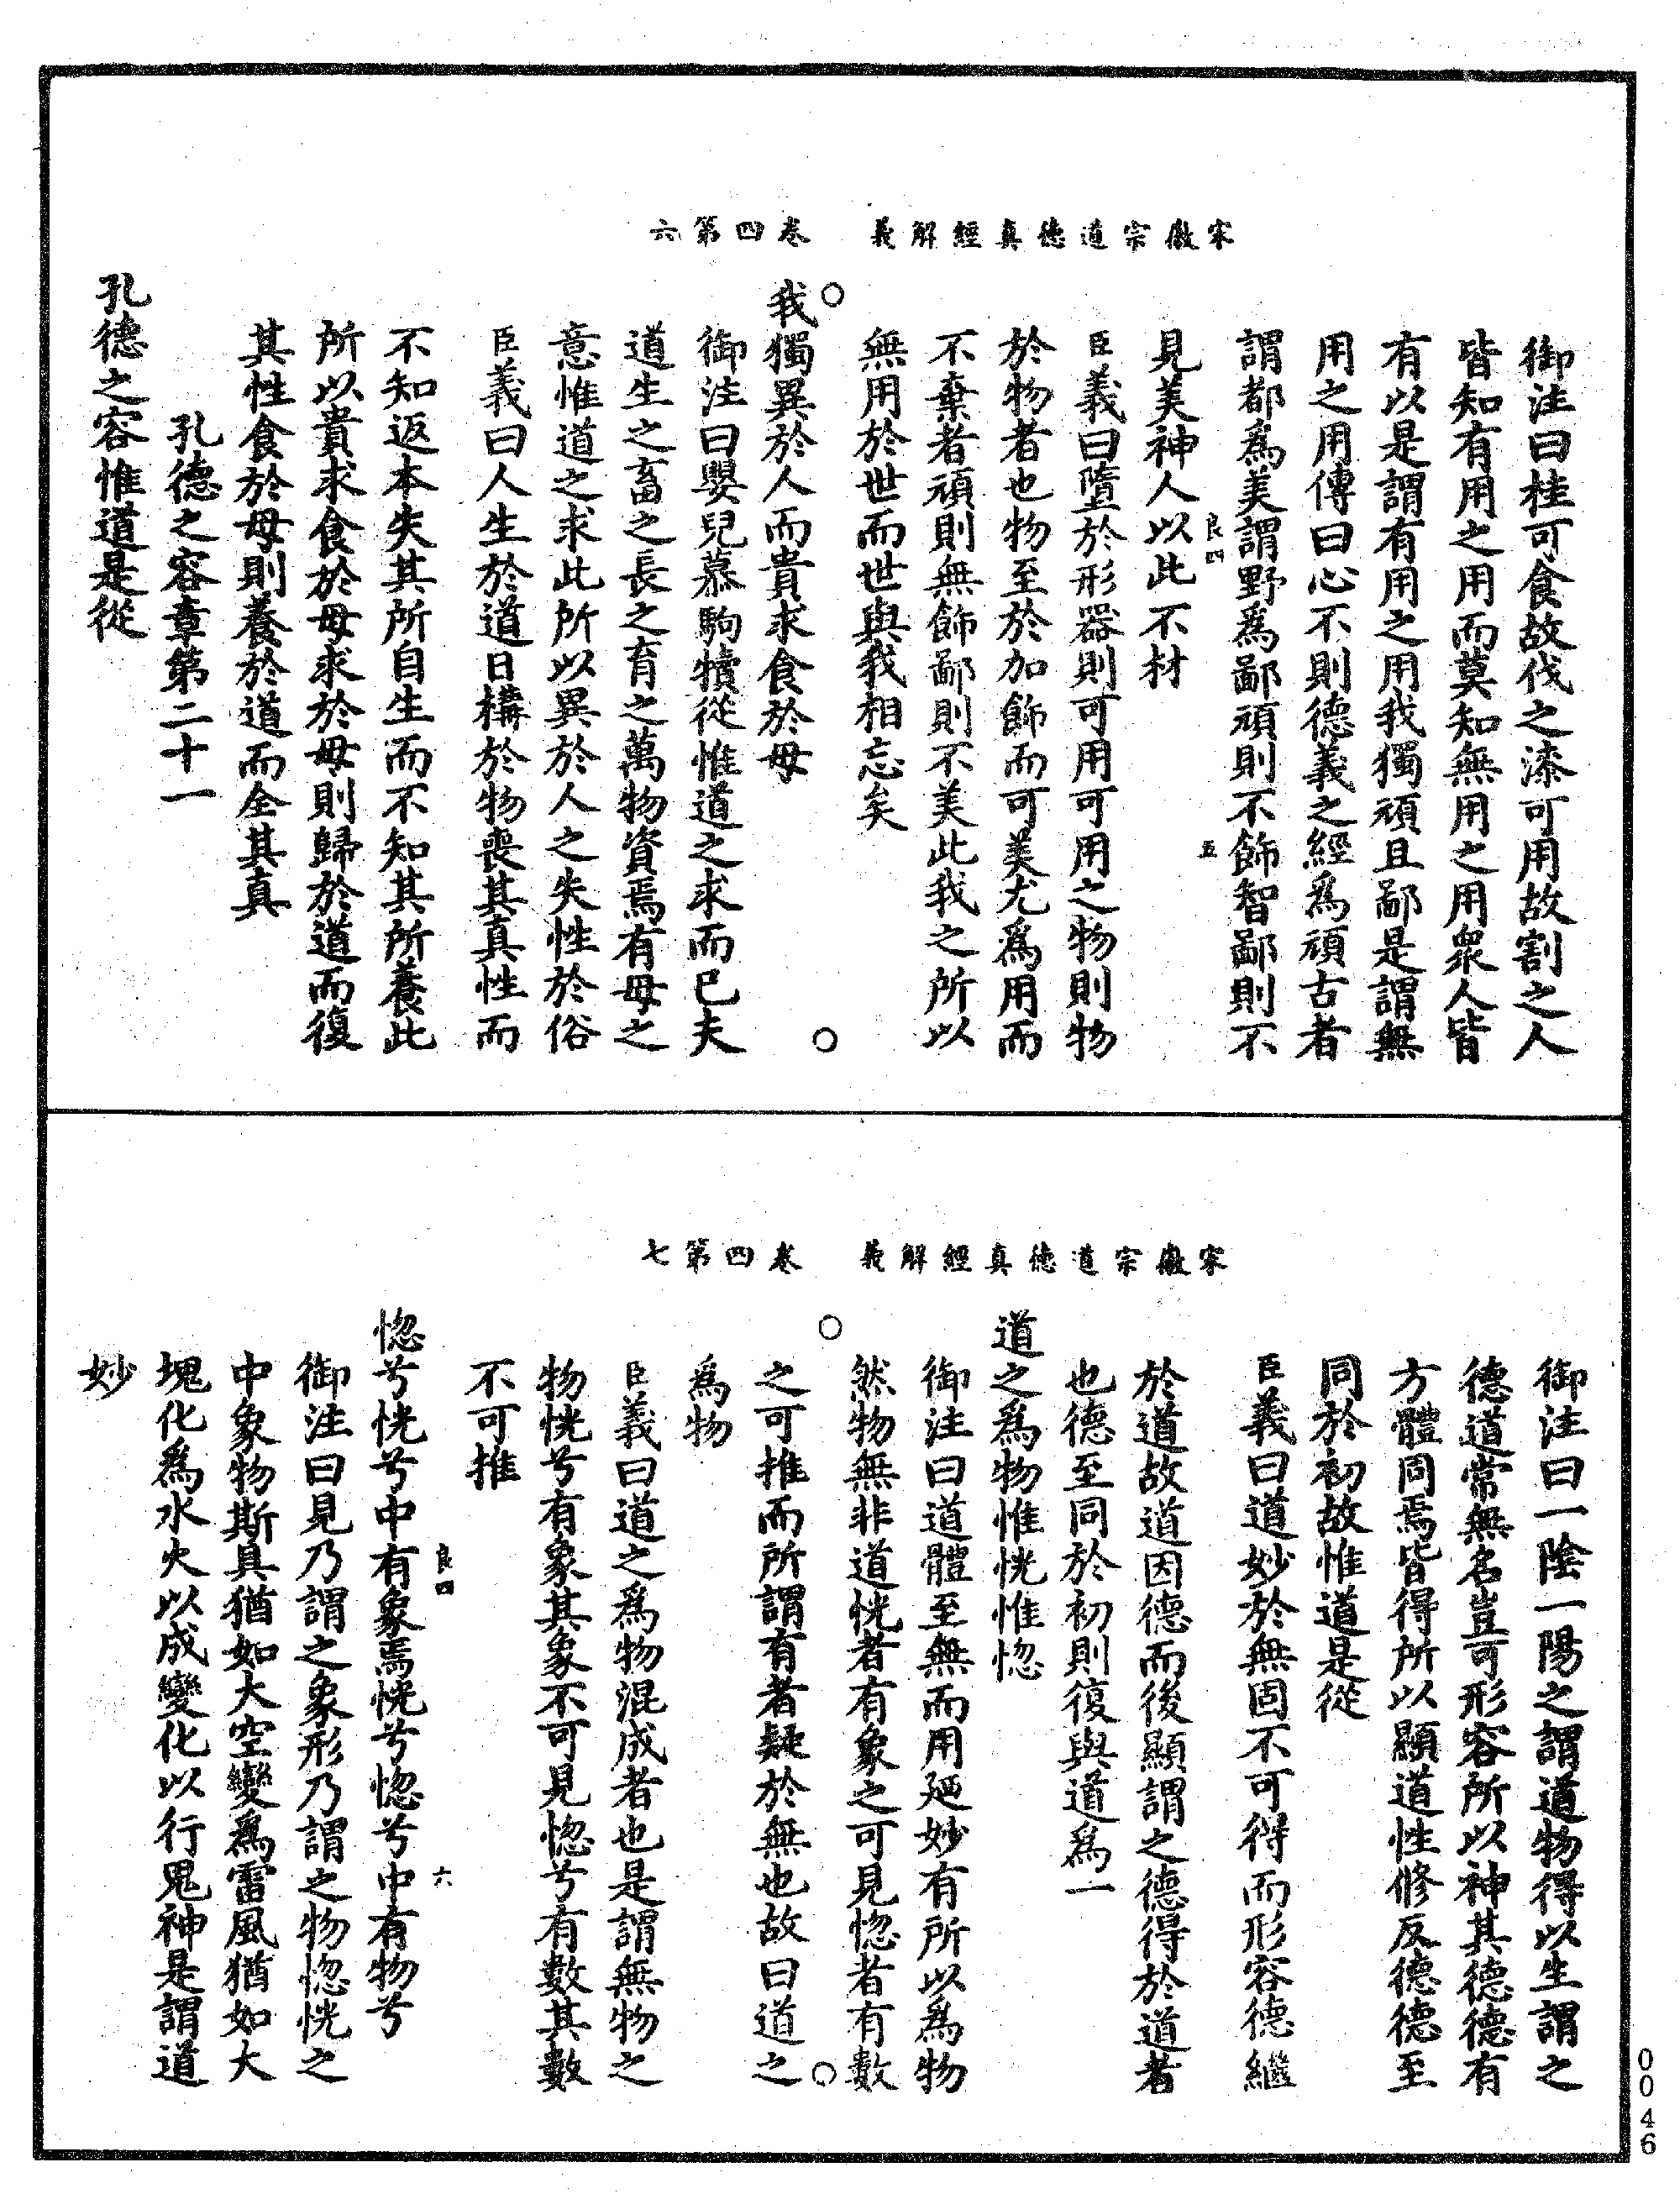 宋徽宗道德真經解義　卷四第六
御注曰桂可食故伐之漆可用故割之人
皆知有用之用而莫知無用之用衆人皆
有以是謂有用之用我獨頑且鄙是謂無
用之用傳曰心不則德義之經爲頑古者
謂都爲美謂野爲鄙頑則不飾智鄙則不
良四　五
見美神人以此不材
臣義曰墮於形器則可用可用之物則物
於物者也物至於加飾而可美尤爲用而
不棄者頑則無飾鄙則不美此我之所以
無用於世而世與我相忘矣
我獨異於人而貴求食於母
御注曰嬰兒慕駒犢從惟道之求而已夫
道生之畜之長之育之萬物資焉有母之
意惟道之求此所以異於人之失性於俗
臣義曰人生於道日構於物喪其真性而
不知返本失其所自生而不知其所養此
所以貴求食於母求於母則歸於道而復
其性食於母則養於道而全其真
孔德之容章第二十一
孔德之容惟道是從
宋徽宗道德真經解義　卷四第七
御注曰一陰一陽之謂道物得以生謂之
德道常無名豈可形容所以神其德德有
方體同焉皆得所以顯道性修反德德至
同於初故惟道是從
臣義曰道妙於無固不可得而形容德繼
於道故道因德而後顯謂之德得於道者
也德至同於初則復與道爲一
道之爲物惟恍惟惚
御注曰道體至無而用廼妙有所以爲物
然物無非道恍者有象之可見惚者有數
之可推而所謂有者疑於無也故曰道之
爲物
臣義曰道之爲物混成者也是謂無物之
物恍兮有象其象不可見惚兮有數其數
不可推
良四　六
惚兮恍兮中有象焉恍兮惚兮中有物兮
御注曰見乃謂之象形乃謂之物惚恍之
中象物斯具猶如大空變爲雷風猶如大
塊化爲水火以成變化以行鬼神是謂道
妙
0046